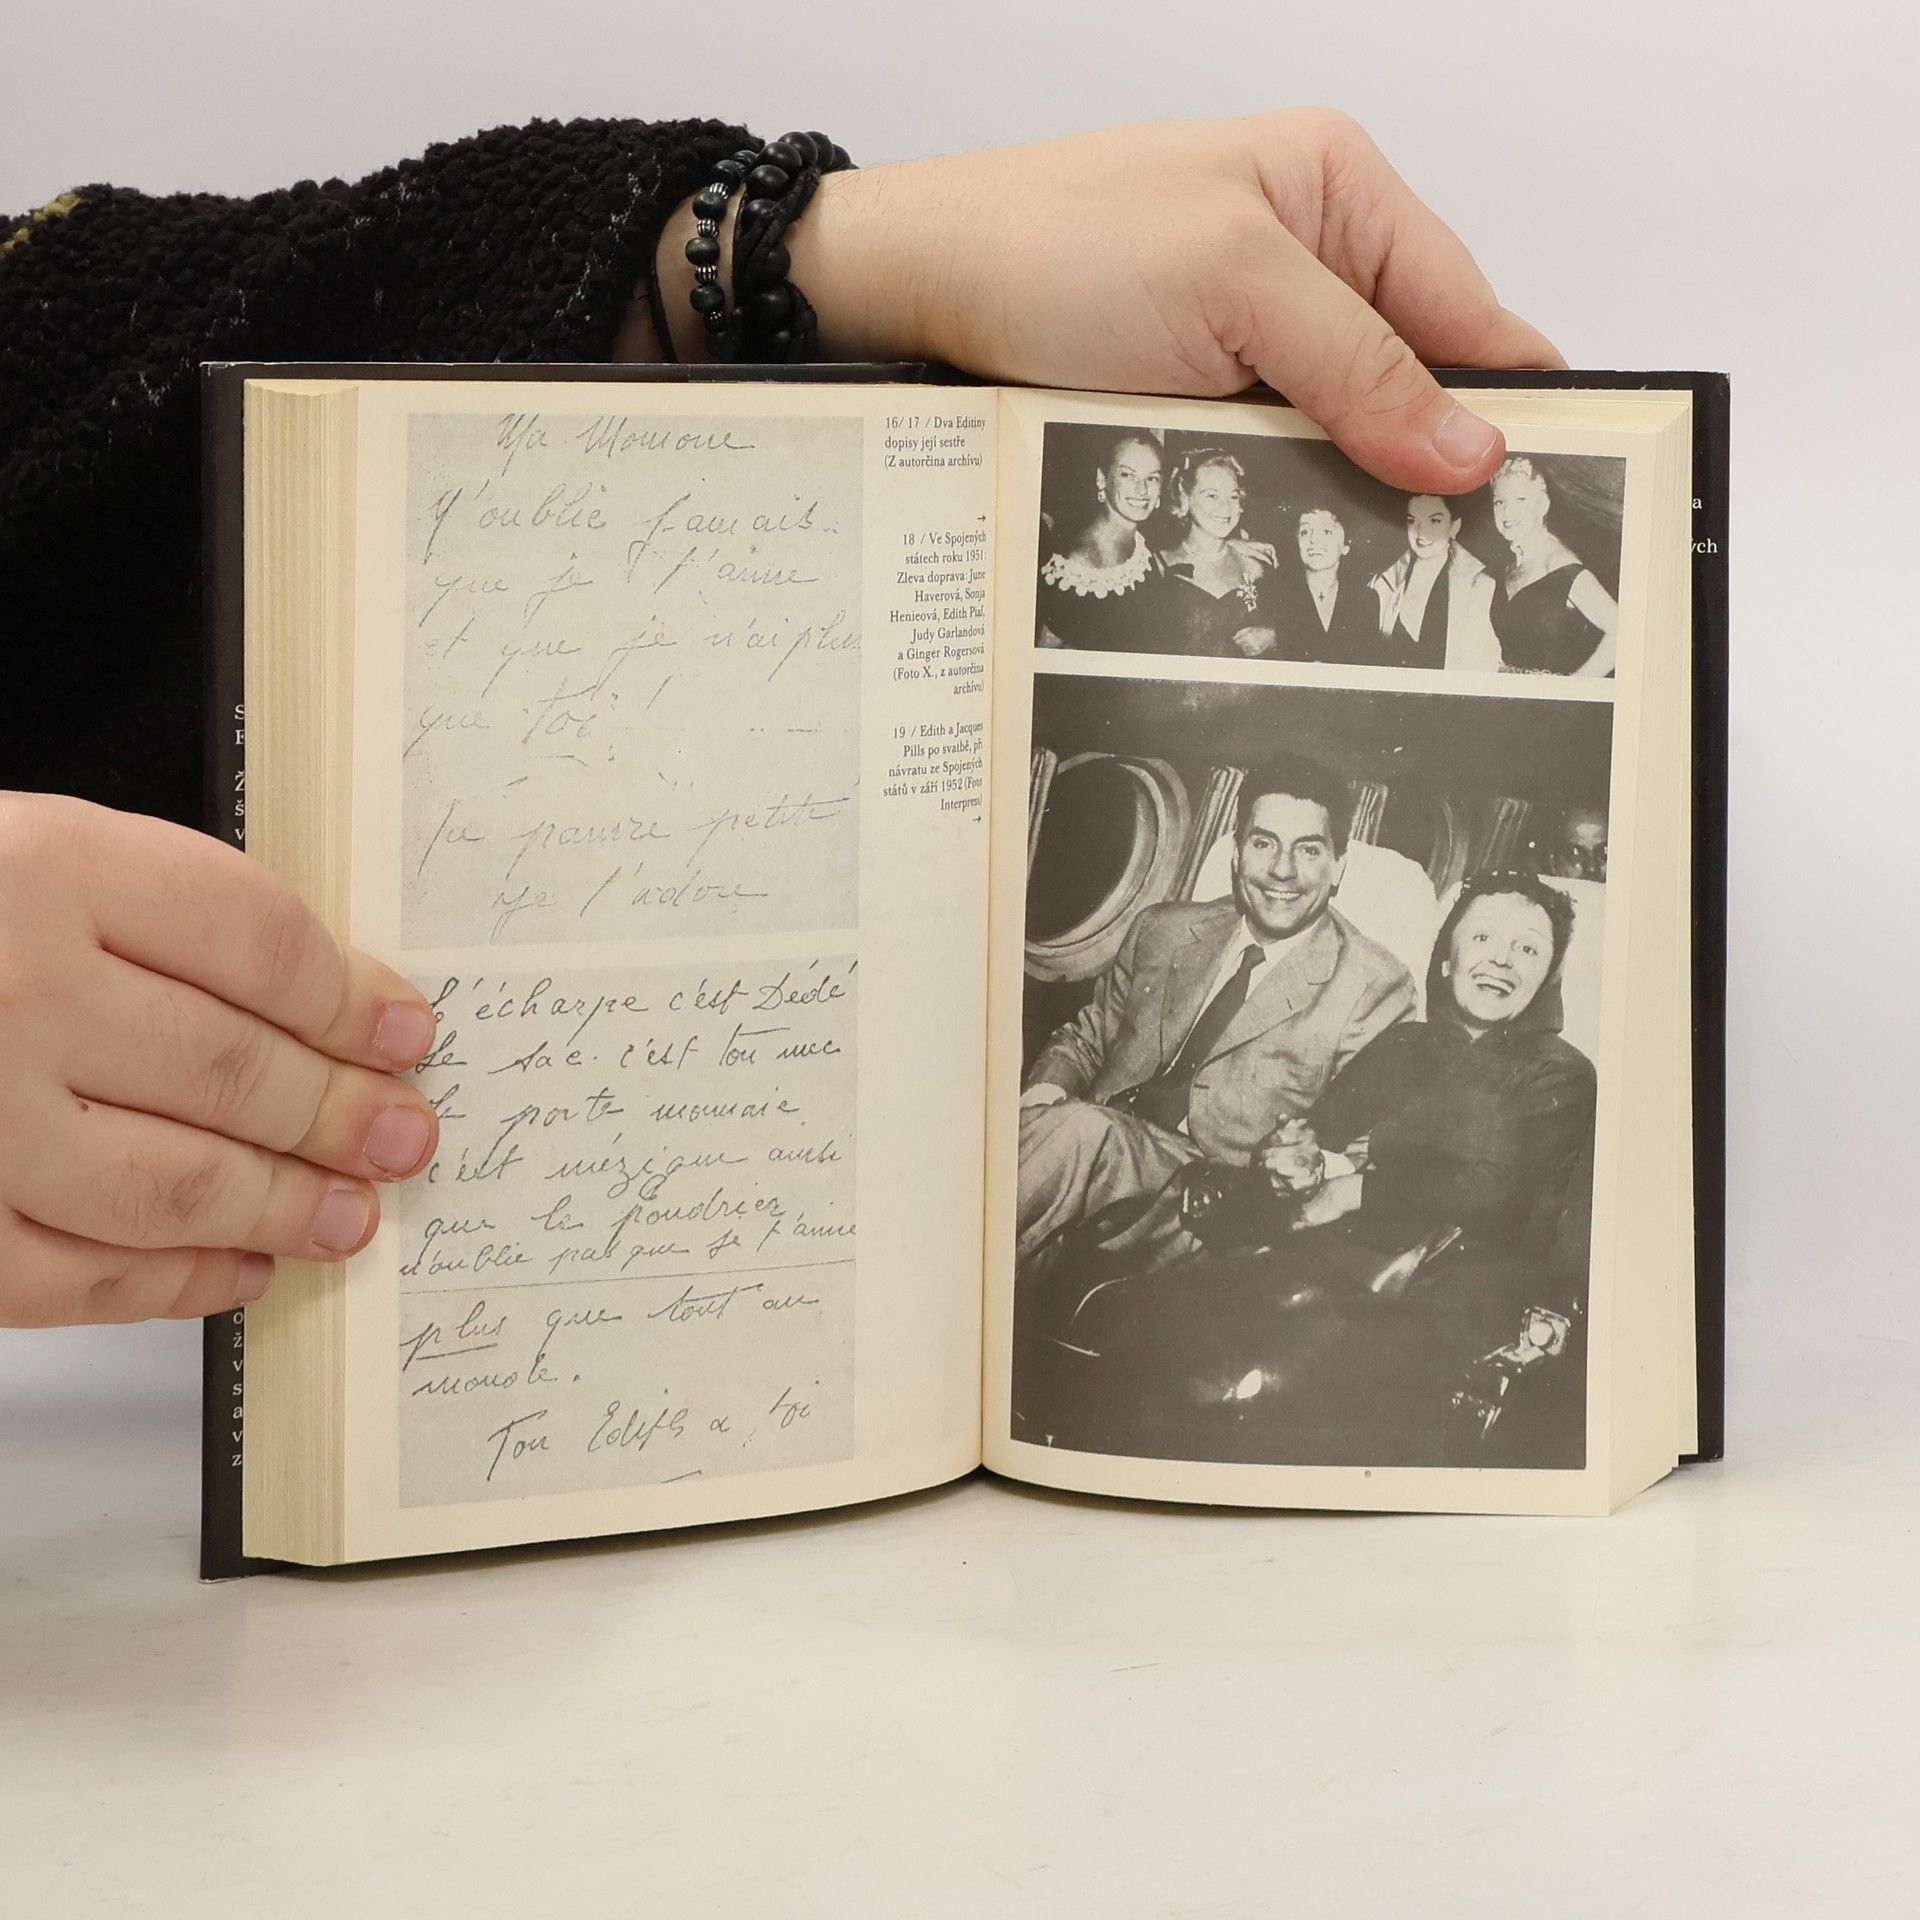 Ma Momone
N'oublie jamais..
que je t'aime
et que je n'ai plus
que toi !
Ta pauvre petite
je t'adore
L'écharpe c'est Dédé
Le sac. c'est ton mec
le porte monnaie
c'est mézigue ainsi
que le poudrier
n'oublie pas que je t'aime
plus que tout au
monde.
Ton Edith a toi
16/ 17 / Dva Editiny
dopisy její sestře
(Z autorčina archívu)
→
18 / Ve Spojených
státech roku 1951:
Zleva doprava: June
Haverová, Sonja
Henieová, Edith Piaf,
Judy Garlandová
a Ginger Rogersová
(Foto X., z autorčina
archívu)
19 / Edith a Jacques
Pills po svatbě, při
návratu ze Spojených
států v září 1952 (Foto
Interpress)
→
a
ých
S
E
Ž
š
v
o
ž
v
s
a
v
z